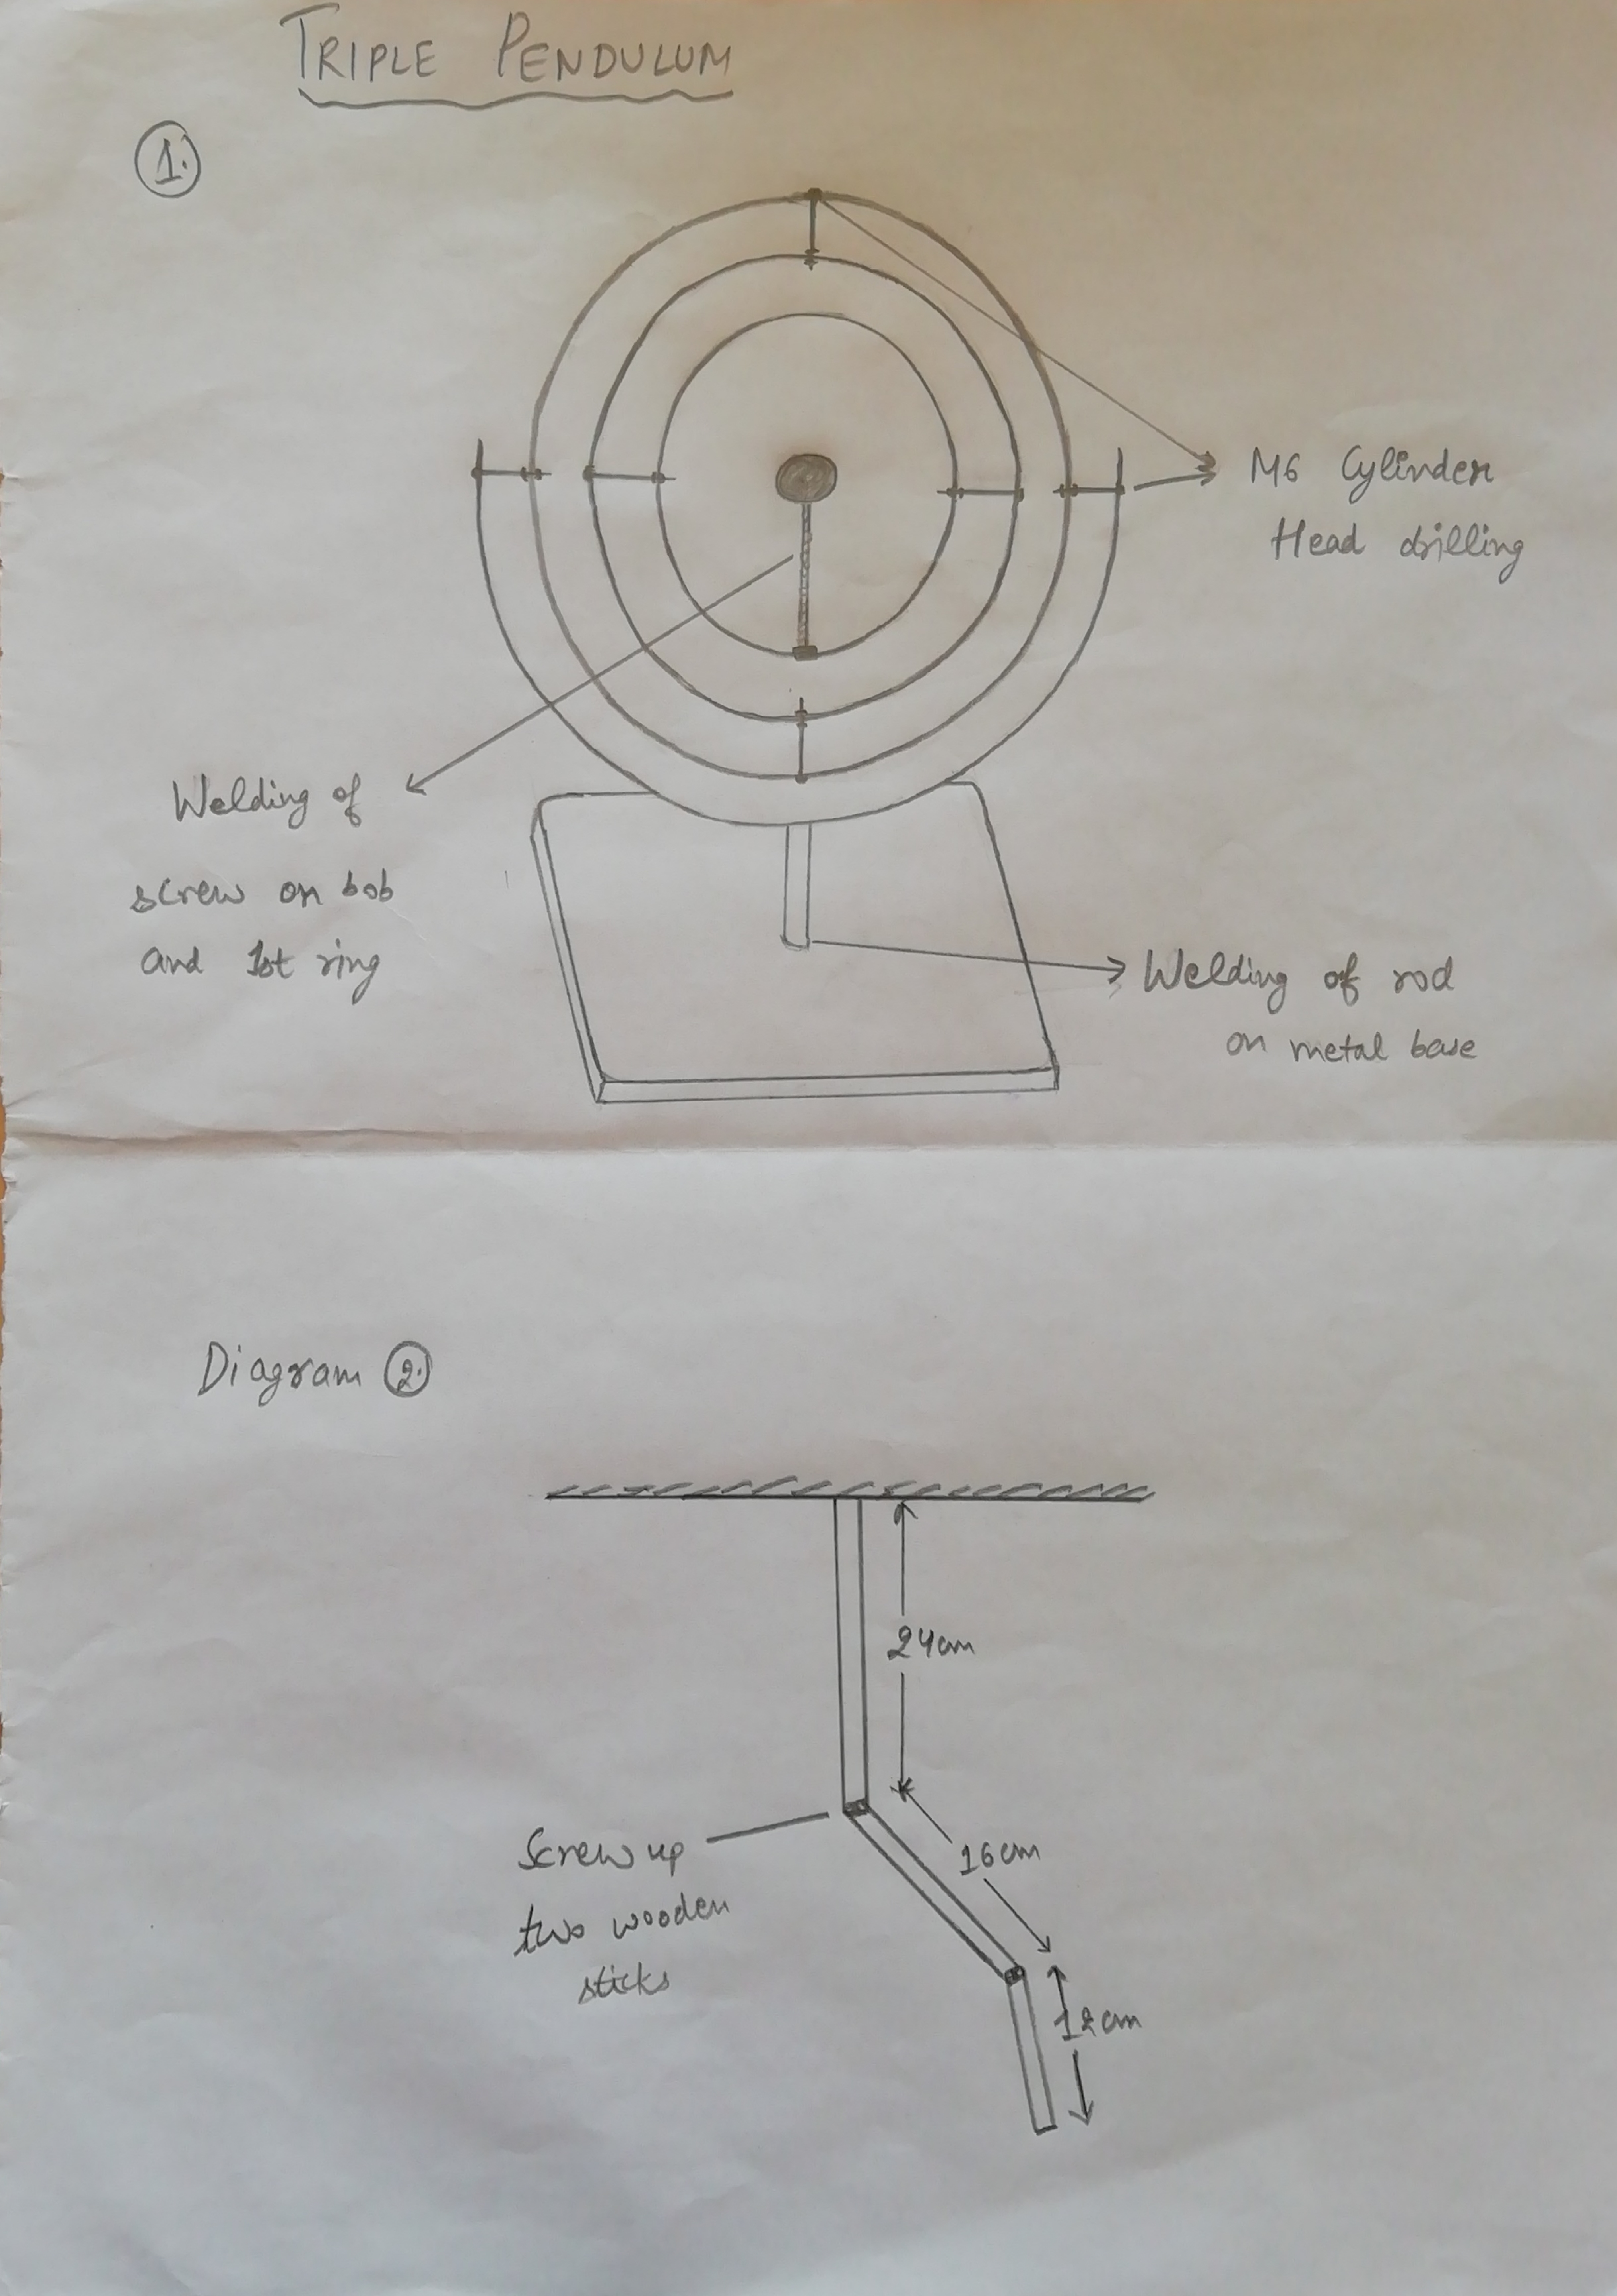 TRIPLE PENDULUM
1.
M6 Cylinder
Head drilling
Welding of
screw on bob
and 1st ring
Welding of rod
on metal base
Diagram 2.
24cm
16cm
Screw up
two wooden
sticks
12cm